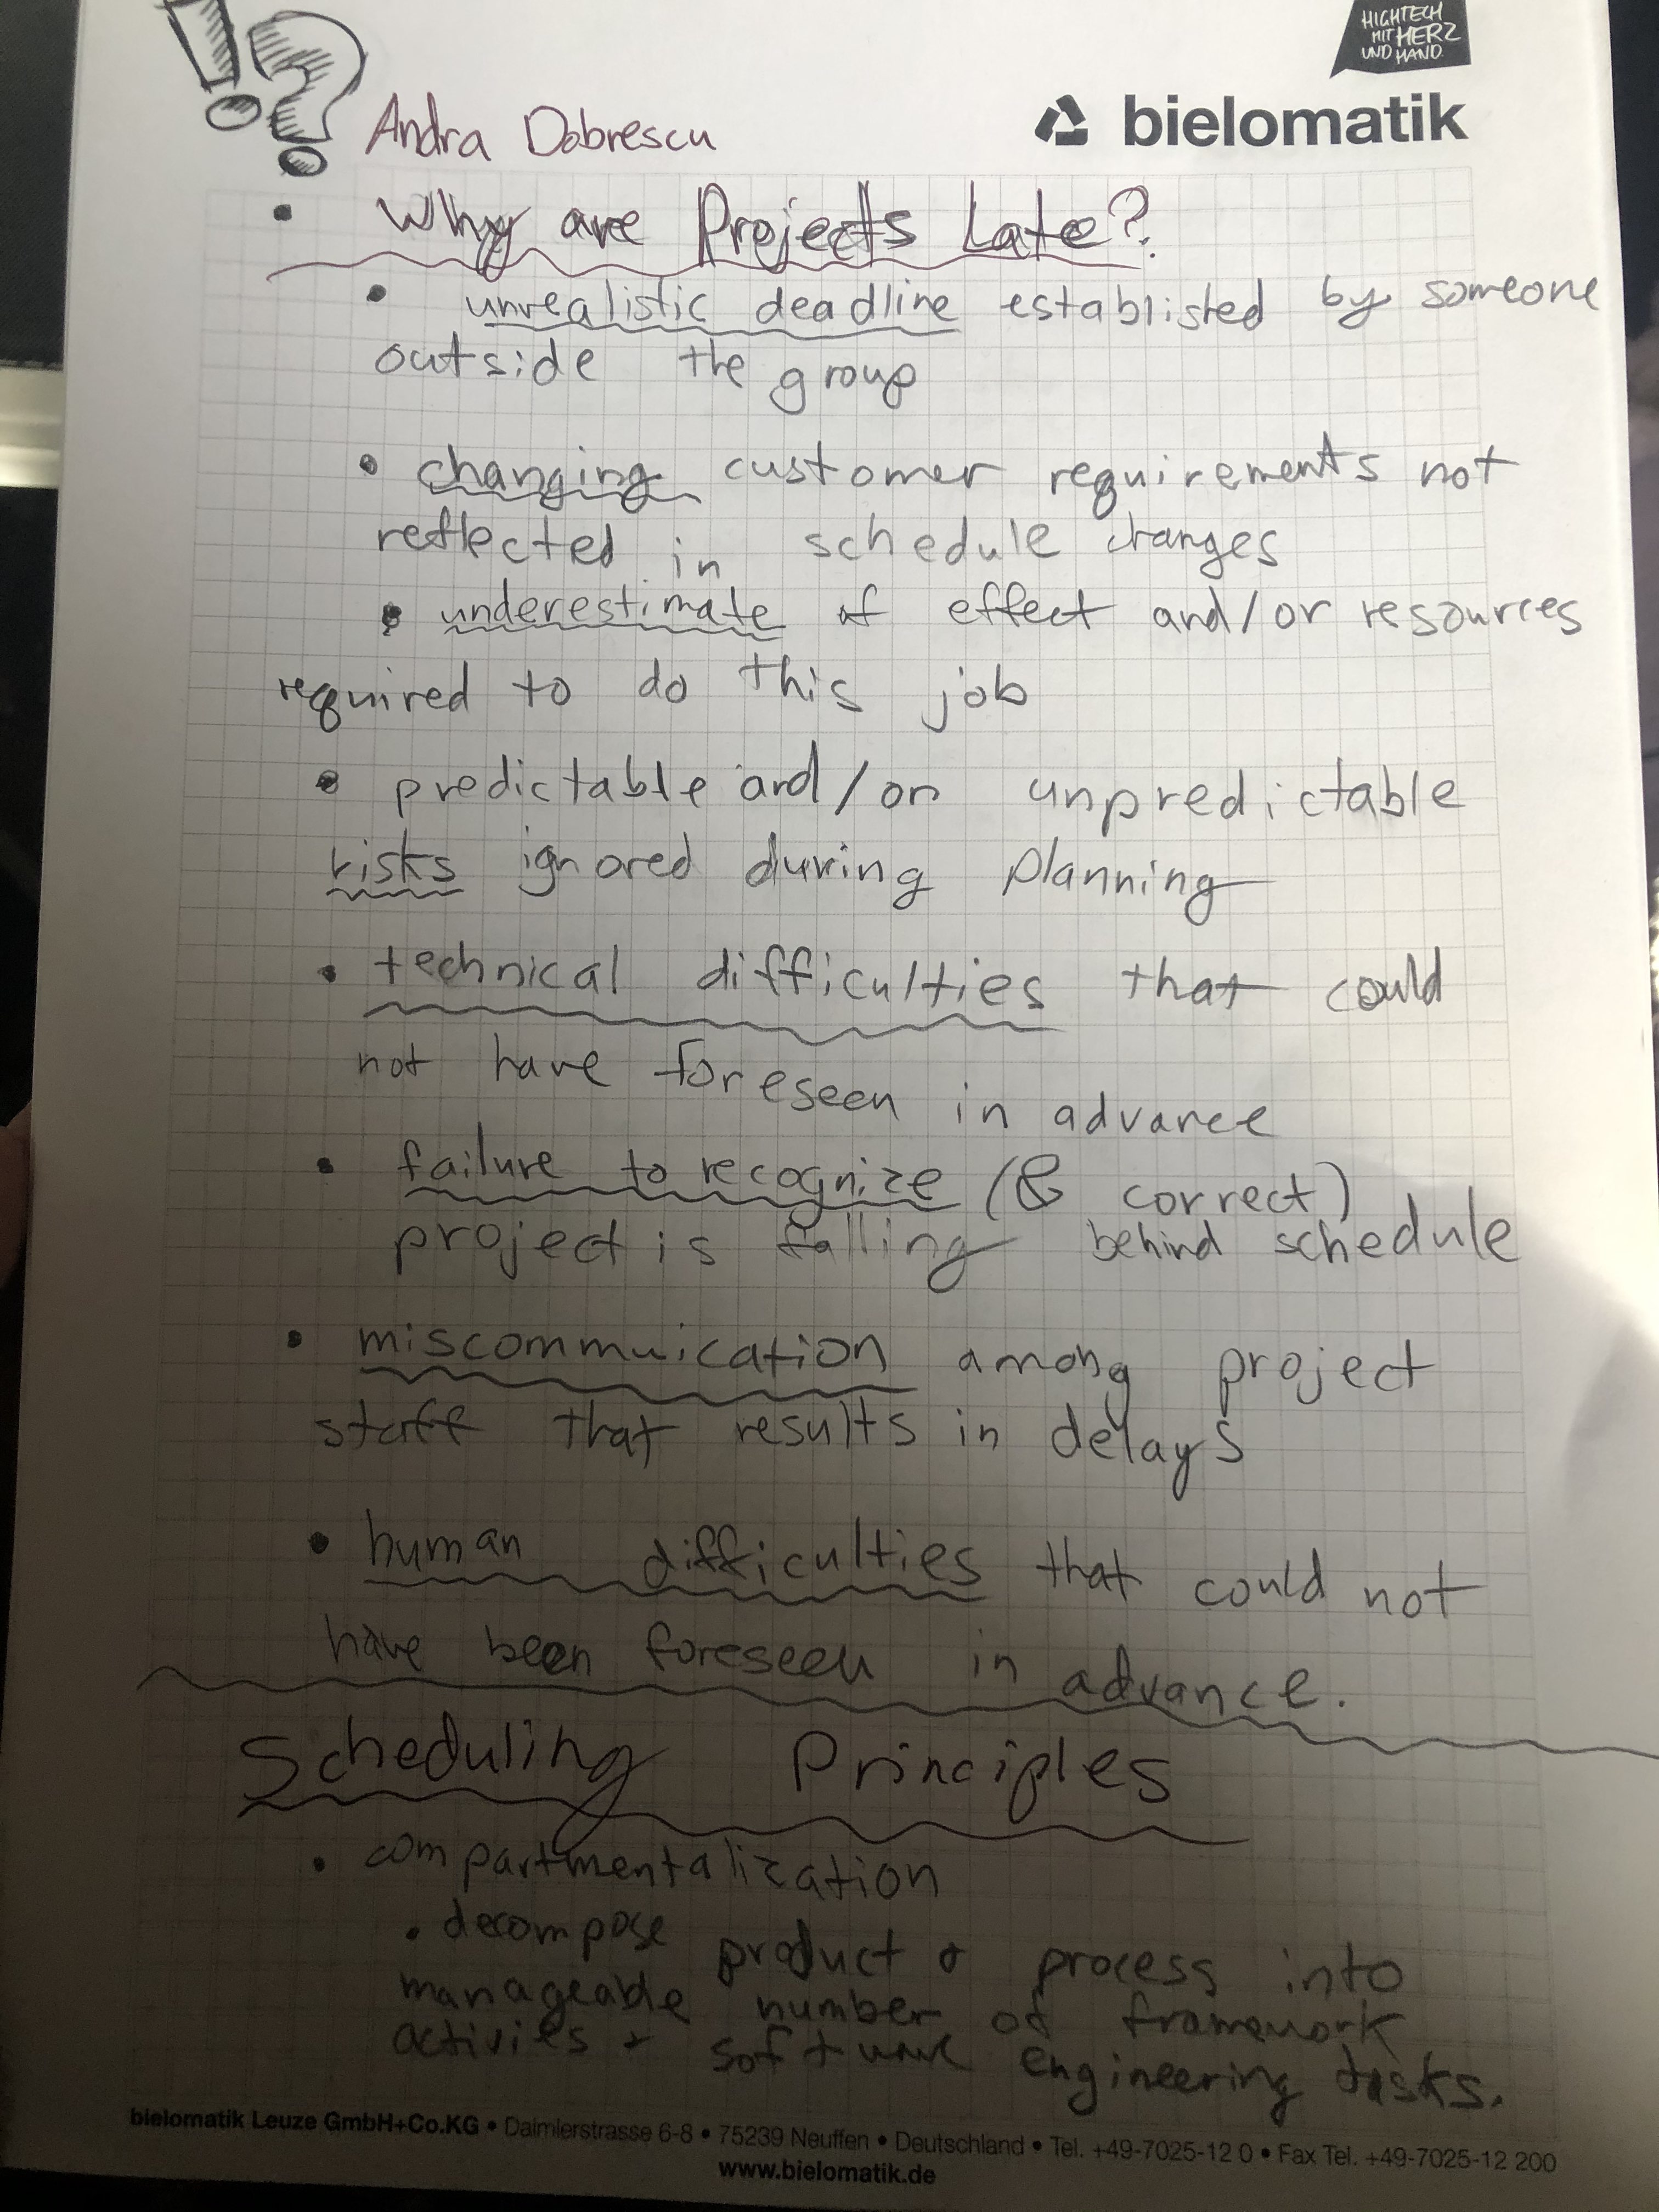 !?
HIGHTECH
MIT HERZ
UND HAND.
bielomatik
Andra Dobrescu
• Why are Projects Late?
• unrealistic deadline establisted by someone
outside the group
• changing customer requirements not
reflected in schedule changes
• underestimate of effect and/or resources
required to do this job
• predictable and/or unpredictable
risks ignored during planning
• technical difficulties that could
not have foreseen in advance
• failure to recognize (& correct)
project is falling behind schedule
• miscommuication among project
staff that results in delays
• human difficulties that could not
have been foreseen in advance.
Scheduling Principles
• compartmentalization
• decompose product & process into
manageable number of framework
activies + software engineering tasks.
bielomatik Leuze GmbH+Co.KG • Daimlerstrasse 6-8 • 75239 Neuffen • Deutschland • Tel. +49-7025-12 0 • Fax Tel. +49-7025-12 200
www.bielomatik.de